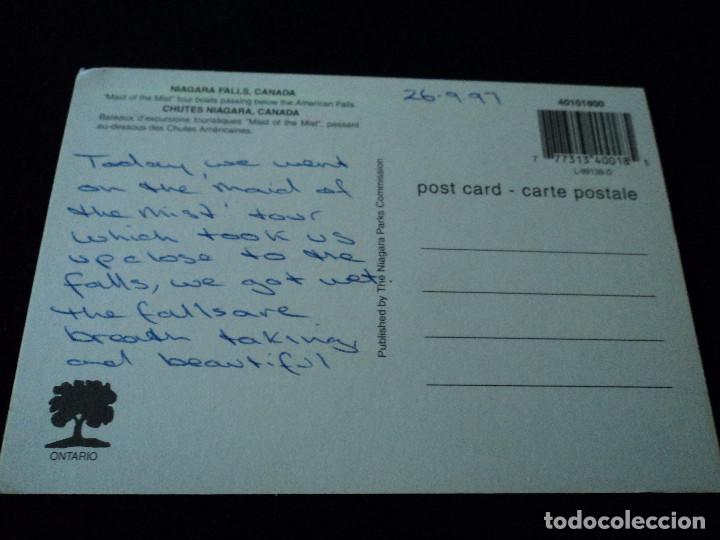 NIAGARA FALLS, CANADA
"Maid of the Mist" tour boats passing below the American Falls.
CHUTES NIAGARA, CANADA
Bateaux d'excursions touristiques "Maid of the Mist", passant
au-dessous des Chutes Américaines.
Today, we went
on the 'maid of
the mist' tour
which took us
upclose to the
falls, we got wet.
the falls are
breath taking
and beautiful
ONTARIO
Published by The Niagara Parks Commission
26-9-97
40101800
7 77313 40018 5
post card - carte postale
todocoleccion